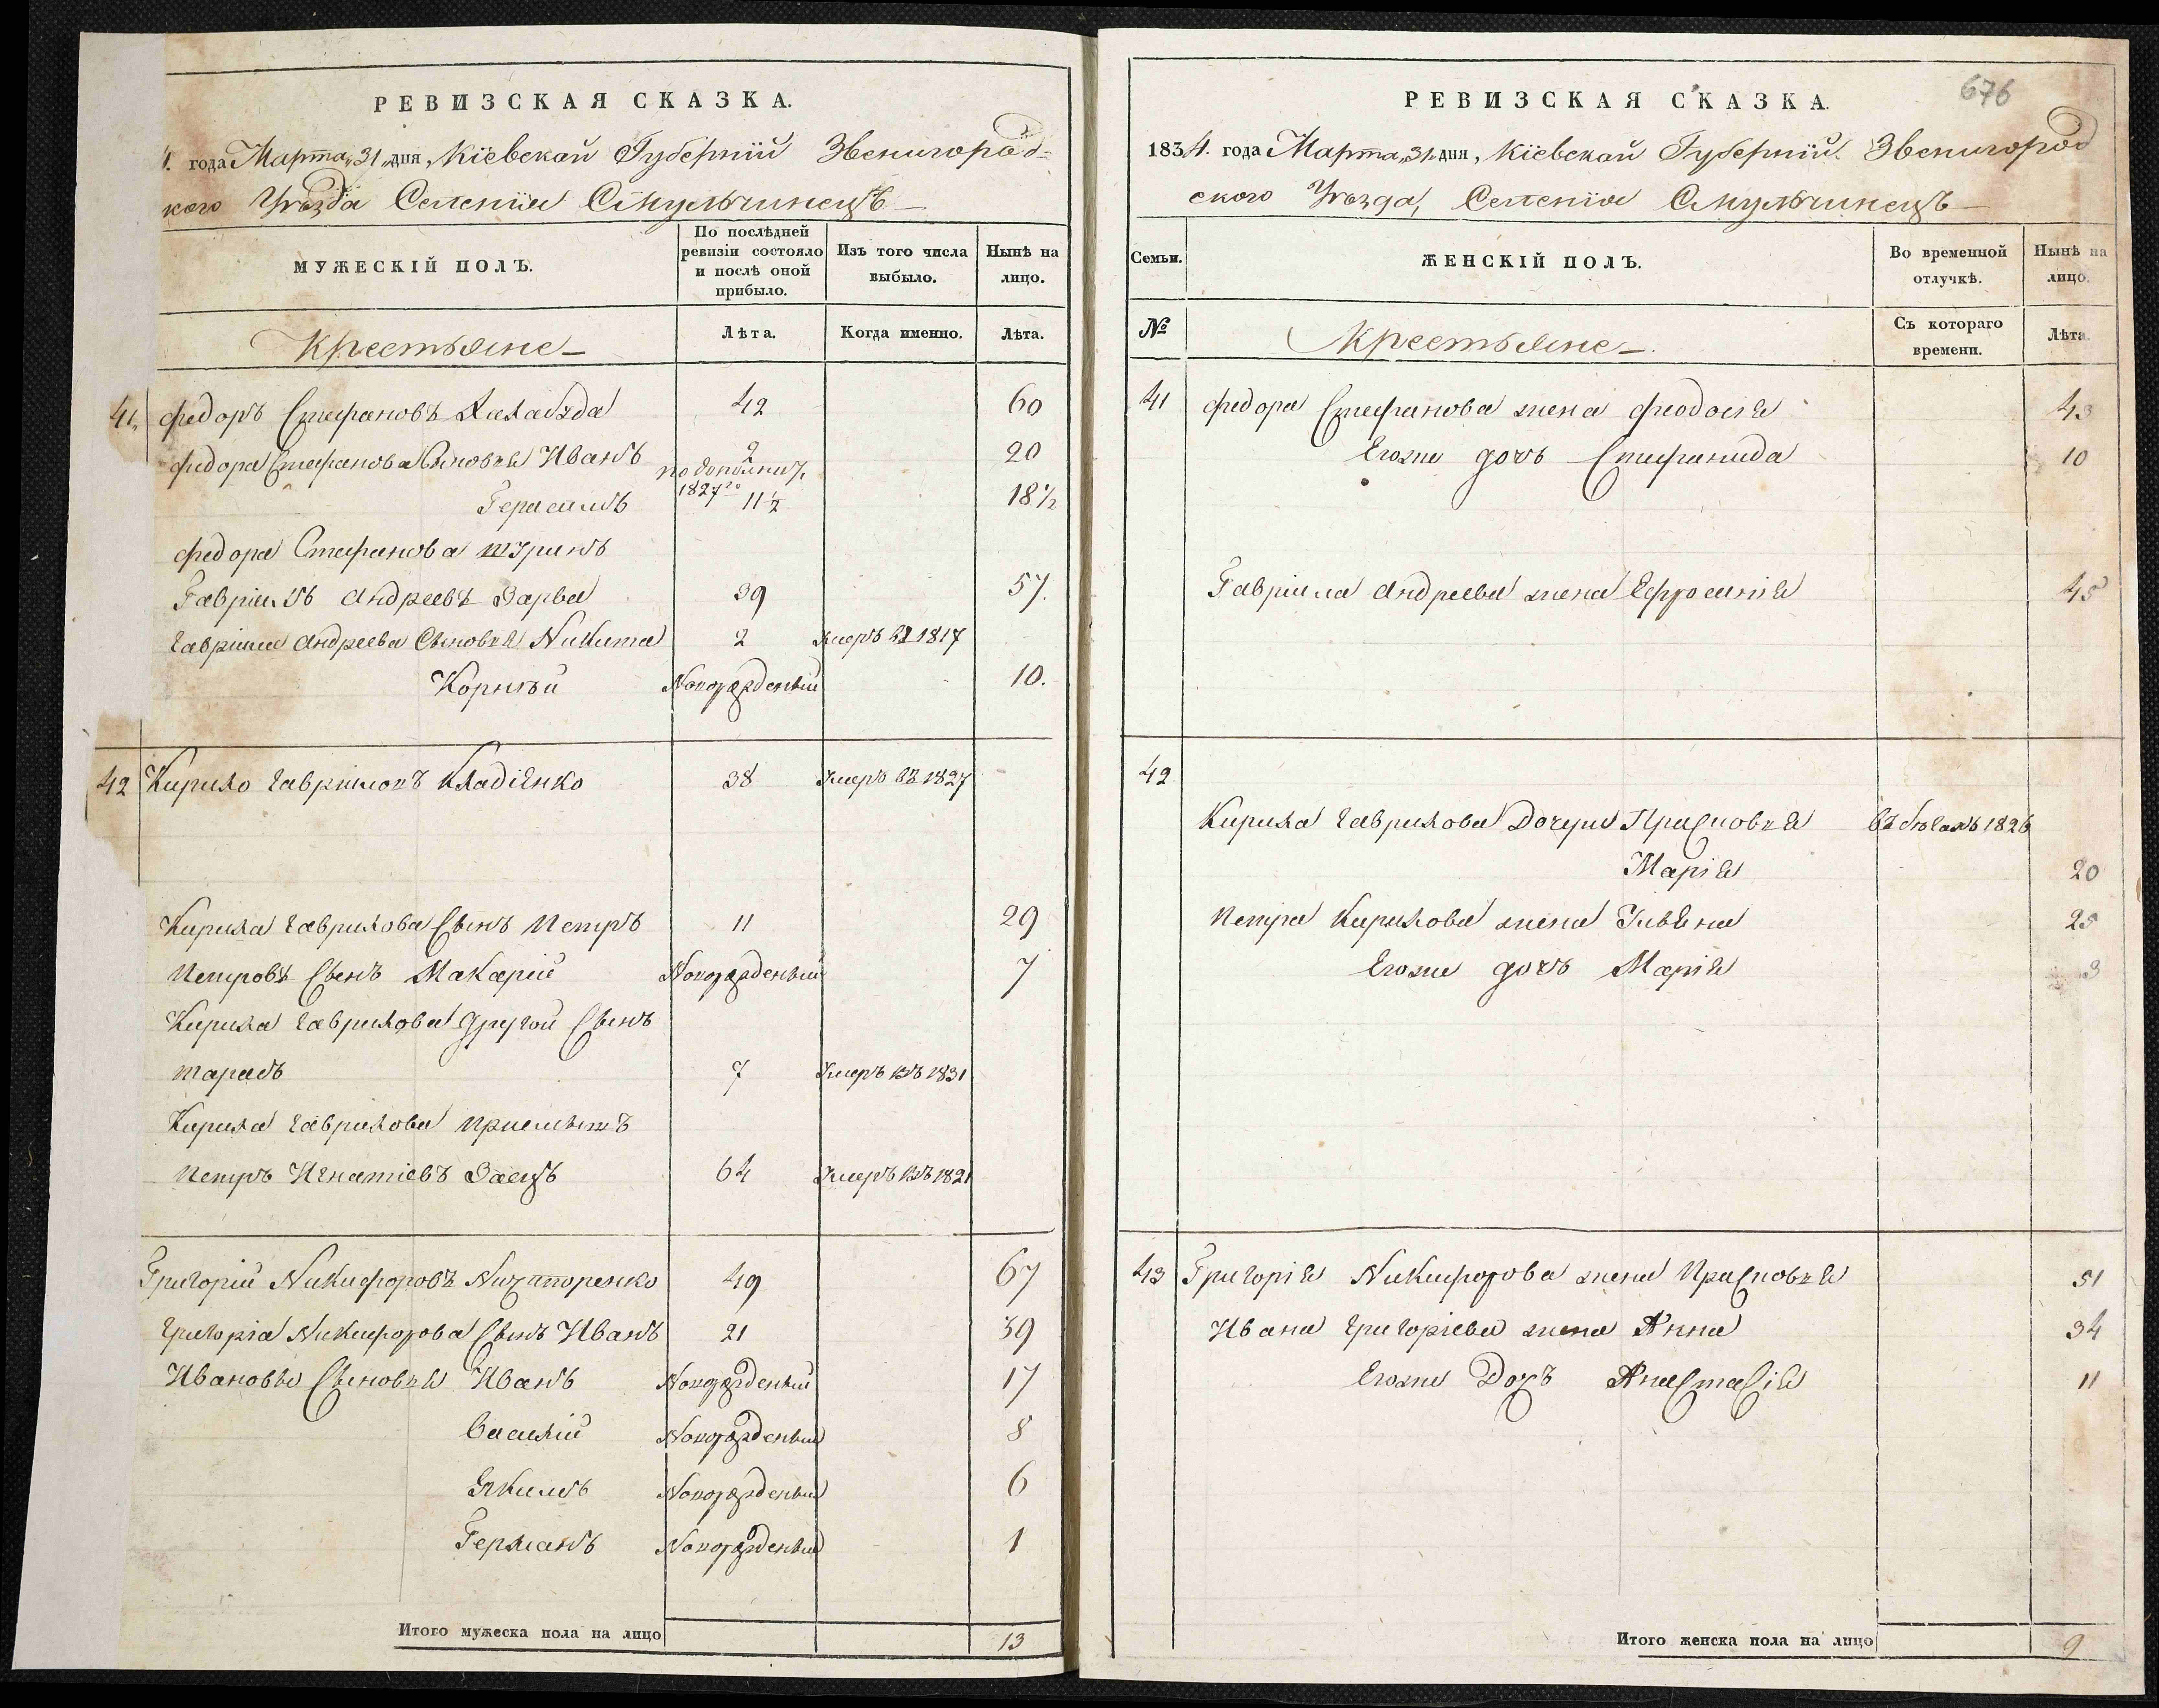 РЕВИЗСКАЯ СКАЗКА.
4. года Марта „31„ дня, Кіевской Губерніи Звенигород-
кого Уѣзда Селенія Смульчинецъ
МУЖЕСКІЙ ПОЛЪ.
По послѣдней ревизіи состояло и послѣ оной прибыло.
Изъ того числа выбыло.
Нынѣ на лицо.
Крестьяне
Лѣта.
Когда именно.
Лѣта.
41 Федоръ Стефановъ 42 60
Федора Стефанова Сыновья Иванъ 2 20
по дополнит.
Герасимъ 1827го 11½ 18½
Федора Стефанова шуринъ
Гавріилъ Андреевъ Зарва 39 57.
Гавріила Андреева Сыновья Никита 2 Умеръ въ 1817
Корнѣй Новорожденый 10.
42 Кирило Гавриловъ Кладіенко 38 Умеръ въ 1827
Кирила Гаврилова Сынъ Петръ 11 29
Петровъ Сынъ Макарій Новорожденый 7
Кирила Гаврилова другой Сынъ
тарасъ 7 Умеръ въ 1831
Кирила Гаврилова приемышъ
Петръ Игнатіевъ Заецъ 64 Умеръ въ 1821
Григорій Никифоровъ 49 67
Григорія Никифорова Сынъ Иванъ 21 39
Ивановы Сыновья Иванъ Новорожденый 17
Василій Новорожденый 8
Якимъ Новорожденый 6
Германъ Новорожденый 1
Итого мужеска пола на лицо 13
676
РЕВИЗСКАЯ СКАЗКА.
1834. года Марта „31„ дня, Кіевской Губерніи Звенигород
ского Уѣзда, Селенія Смульчинецъ
Семьи.
ЖЕНСКІЙ ПОЛЪ.
Во временной отлучкѣ.
Нынѣ на лицо.
№
Крестьяне
Съ котораго времени.
Лѣта.
41 Федора Стефанова жена Феодосія 43
Егоже дочь Стефанида 10
Гавріила Андреева жена Ефросинія 45
42
Кирила Гаврилова Дочери Прасковья въ бѣгахъ 1826
Марія 20
Петра Кирилова жена Ульяна 25
Егоже дочь Марія 3
43 Григорія Никифорова жена Прасковья 51
Ивана Григоріева жена Анна 34
Егоже Дочь Анастасія 11
Итого женска пола на лицо 9